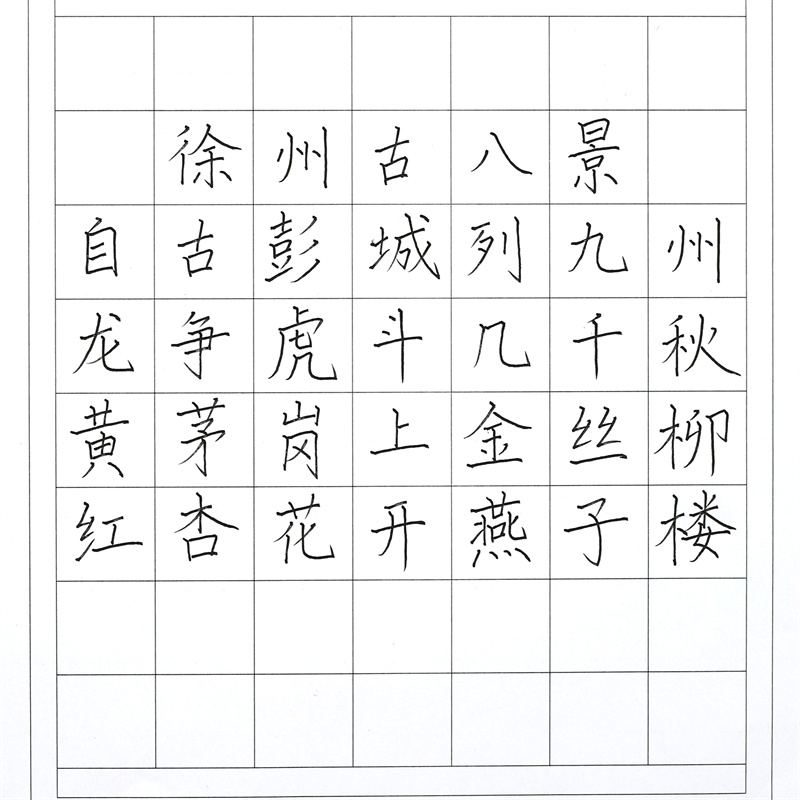 徐州古八景
自古彭城列九州
龙争虎斗几千秋
黄茅岗上金丝柳
红杏花开燕子楼